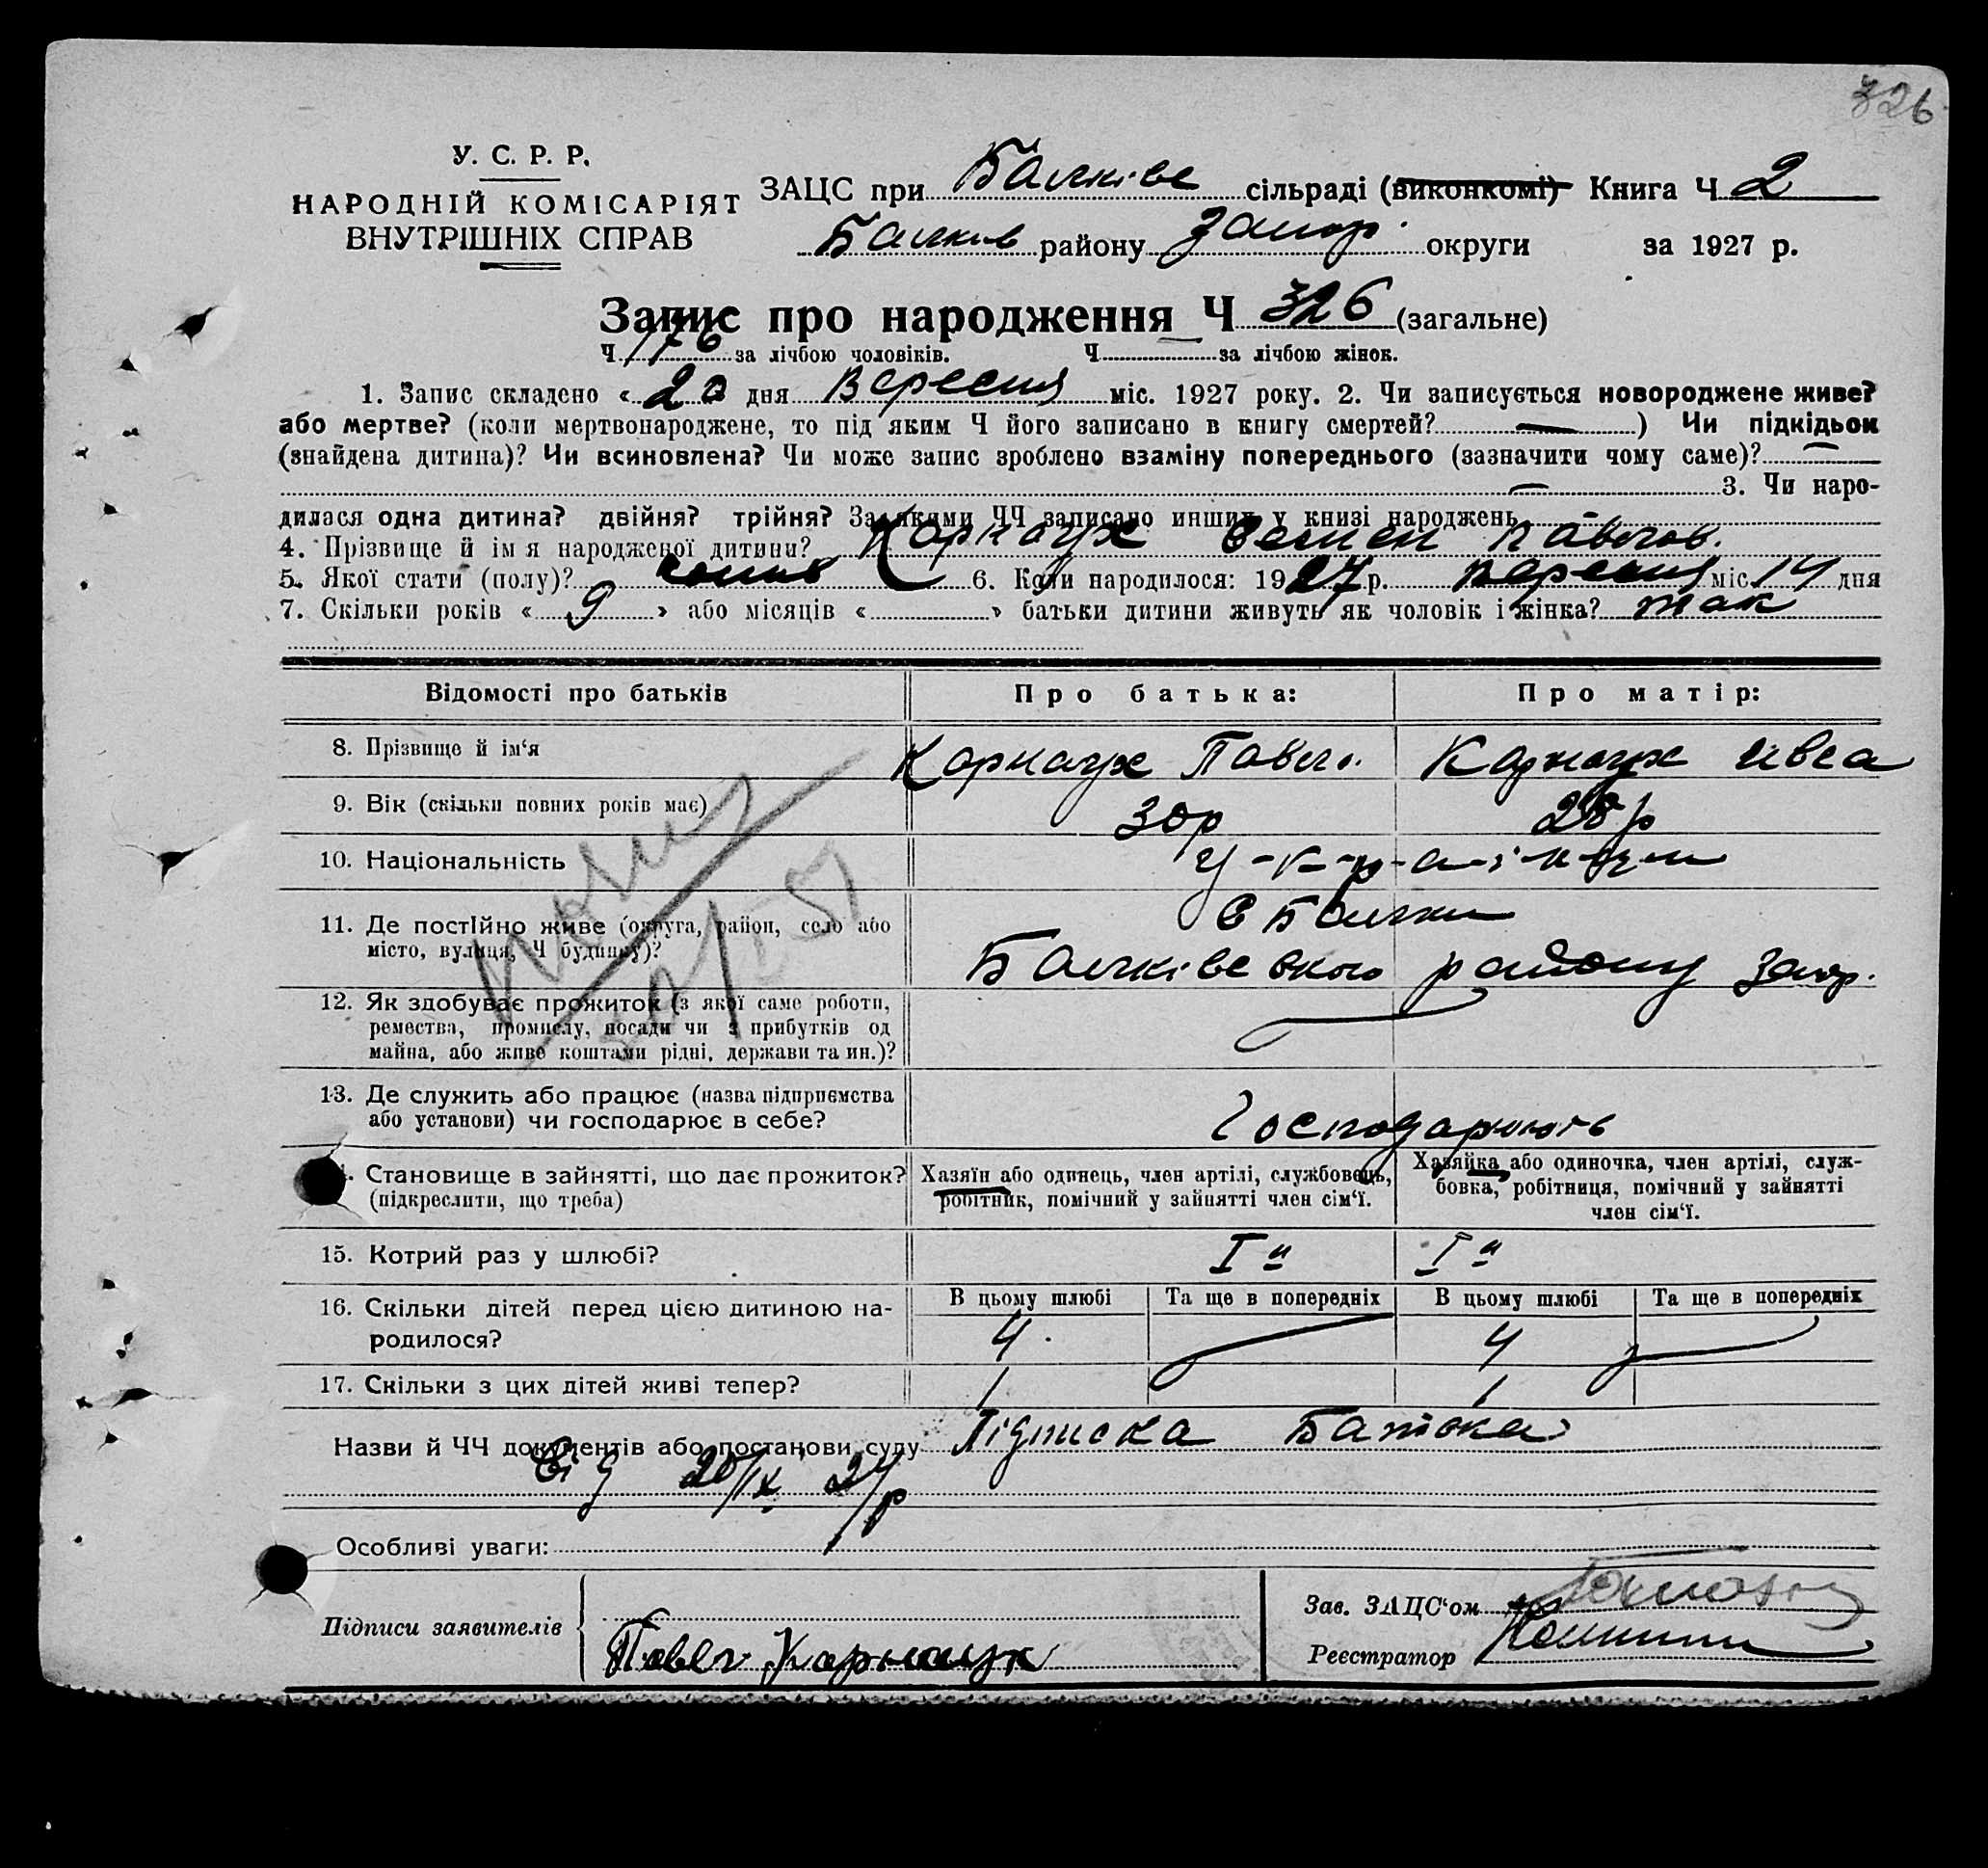 326
У. С. Р. Р.
НАРОДНІЙ КОМІСАРІЯТ
ВНУТРІШНІХ СПРАВ
ЗАЦС при Балківс сільраді (виконкомі) Книга Ч 2
Балків району Запор. округи за 1927 р.
Запис про народження Ч 326 (загальне)
Ч 176 за лічбою чоловіків. Ч за лічбою жінок.
1. Запис складено « 20 дня Вересня міс. 1927 року. 2. Чи записується новороджене живе?
або мертве? (коли мертвонароджене, то під яким Ч його записано в книгу смертей? — ) Чи підкідьок
(знайдена дитина)? Чи всиновлена? Чи може запис зроблено взаміну попереднього (зазначити чому саме)? —
— 3. Чи наро-
дилася одна дитина? двійня? трійня? За якими ЧЧ записано инших у книзі народжень -
4. Прізвище й ім я народженої дитини? Карнаух Семен Павлов.
5. Якої стати (полу)? 6. Коли народилося: 1927 р. вересня міс. 14 дня
7. Скільки років « 9 » або місяців « » батьки дитини живуть як чоловік і жінка? так
Відомості про батьків Про батька: Про матір:
8. Прізвище й ім‘я Карнаух Павло. Карнаух
9. Вік (скільки повних років має) 30р 28р
10. Національність У-к-р-а-ї-н-ці
11. Де постійно живе (округа, район, село або
місто, вулиця, Ч будинку)? С Балки
Балківського району Запор.
12. Як здобуває прожиток (з якої саме роботи,
ремества, промислу, посади чи з прибутків од
майна, або живе коштами рідні, держави та ин.)?
13. Де служить або працює (назва підприємства
або установи) чи господарює в себе? Господарюють
Становище в зайнятті, що дає прожиток?
(підкреслити, що треба)
Хазяїн або одинець, член артілі, службовець,
робітник, помічний у зайнятті член сім‘ї.
Хазяйка або одиночка, член артілі, служ-
бовка, робітниця, помічний у зайнятті
член сім‘ї.
15. Котрий раз у шлюбі? Iй Iй
16. Скільки дітей перед цією дитиною на-
родилося?
В цьому шлюбі Та ще в попередніх В цьому шлюбі Та ще в попередніх
4 4
17. Скільки з цих дітей живі тепер? 1 1
Назви й ЧЧ документів або постанови суду Підписка Батька
від 20/IX 27р
Особливі уваги:
Підписи заявителів
Павел Карнаух
Зав. ЗАЦС‘ом
Реєстратор